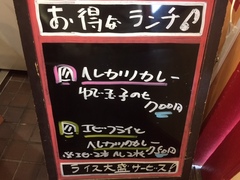 お得なランチ♪
A ヘレカツカレー
ゆで玉子のせ
700円
B エビフライと
ヘレカツカレー
750円
ライス大盛サービス!